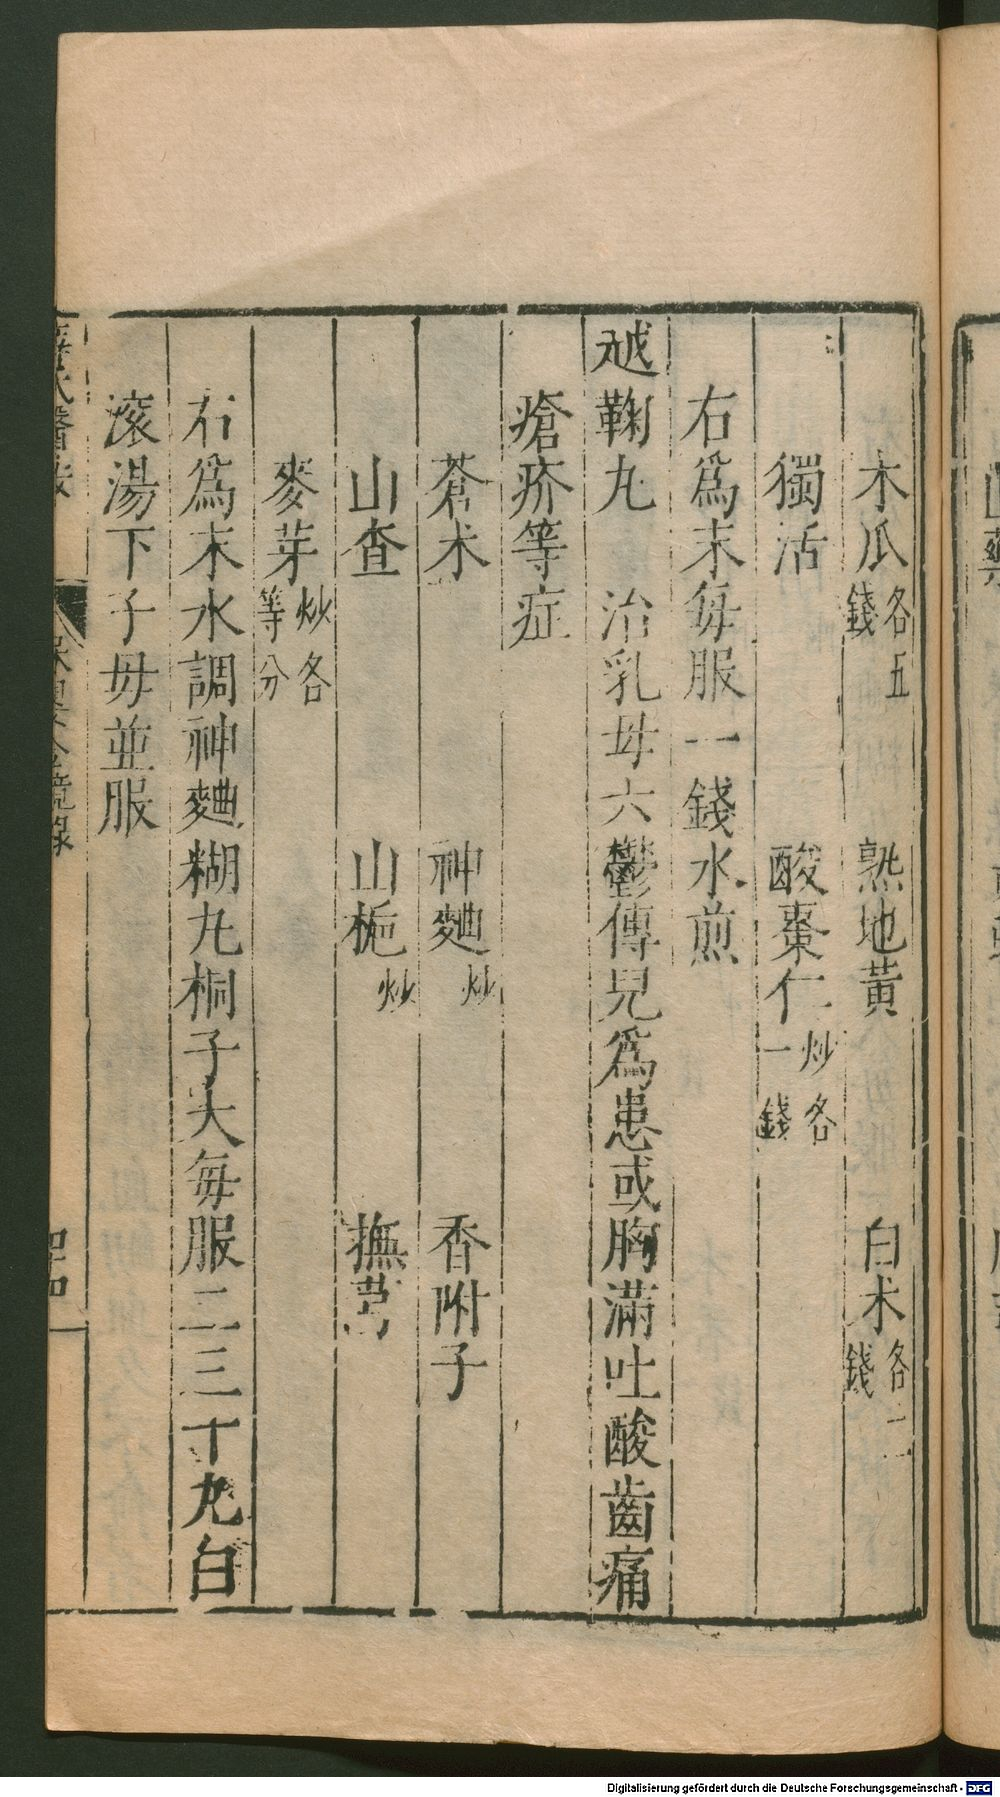 木瓜各五錢　熟地黃　白术各二錢
獨活　酸棗仁炒各一錢
右爲末每服一錢水煎
越鞠丸　治乳母六鬱傳兒爲患或胸滿吐酸齒痛
瘡疥等症
蒼术　神麯炒　香附子
山查　山梔炒　撫芎
麥芽炒各等分
右爲末水調神麯糊丸桐子大每服二三十丸白
滾湯下子母並服
薛氏醫按　保嬰金鏡錄
Digitalisierung gefördert durch die Deutsche Forschungsgemeinschaft - DFG